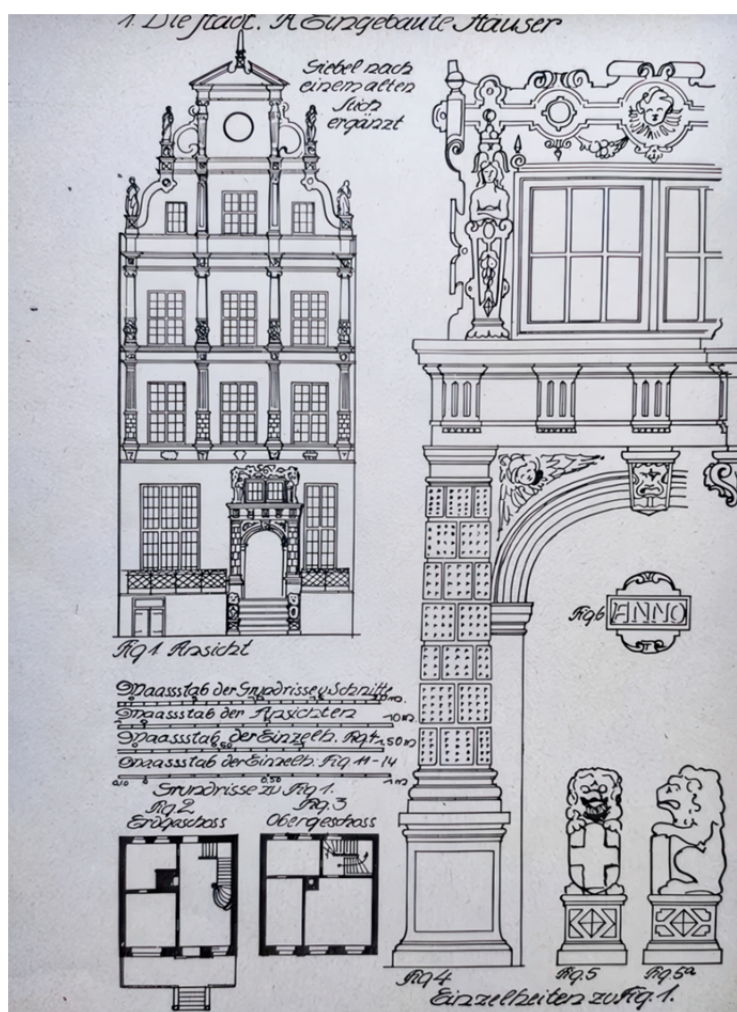 1. Die Stadt. A. Eingebaute Häuser
Giebel nach
einem alten
Stich
ergänzt
Fig 6
ANNO
Fig 1 Ansicht
Maassstab der Grundrisse u Schnitte
10m.
Maassstab der Ansichten
10m
Maassstab der Einzelh. Fig 4
1.50m
0,50
Maassstab der Einzelh. Fig 11-14
0,10 0 0,50 1m
Grundrisse zu Fig 1.
Fig. 2
Erdgeschoss
Fig. 3
Obergeschoss
Fig 4
Fig. 5
Fig. 5a
Einzelheiten zu Fig. 1.